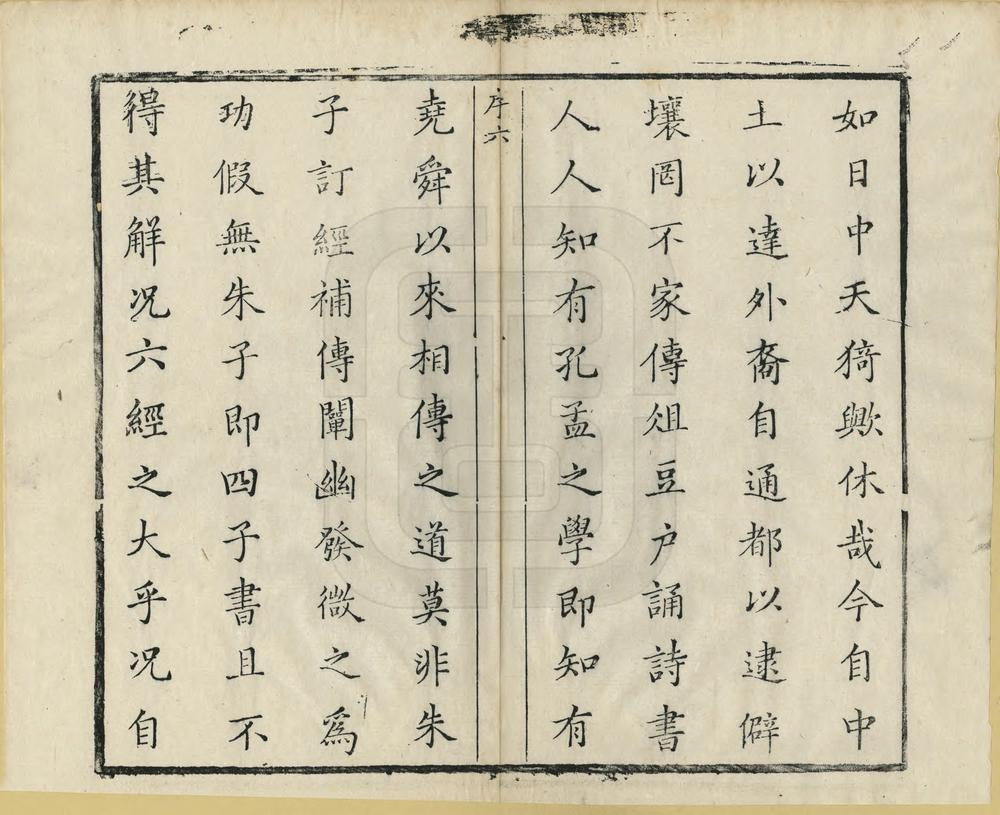 如日中天猗歟休哉今自中
土以達外裔自通都以逮僻
壤罔不家傳俎豆户誦詩書
人人知有孔孟之學即知有
序六
堯舜以來相傳之道莫非朱
子訂經補傳闡幽發微之爲
功假無朱子即四子書且不
得其解况六經之大乎况自